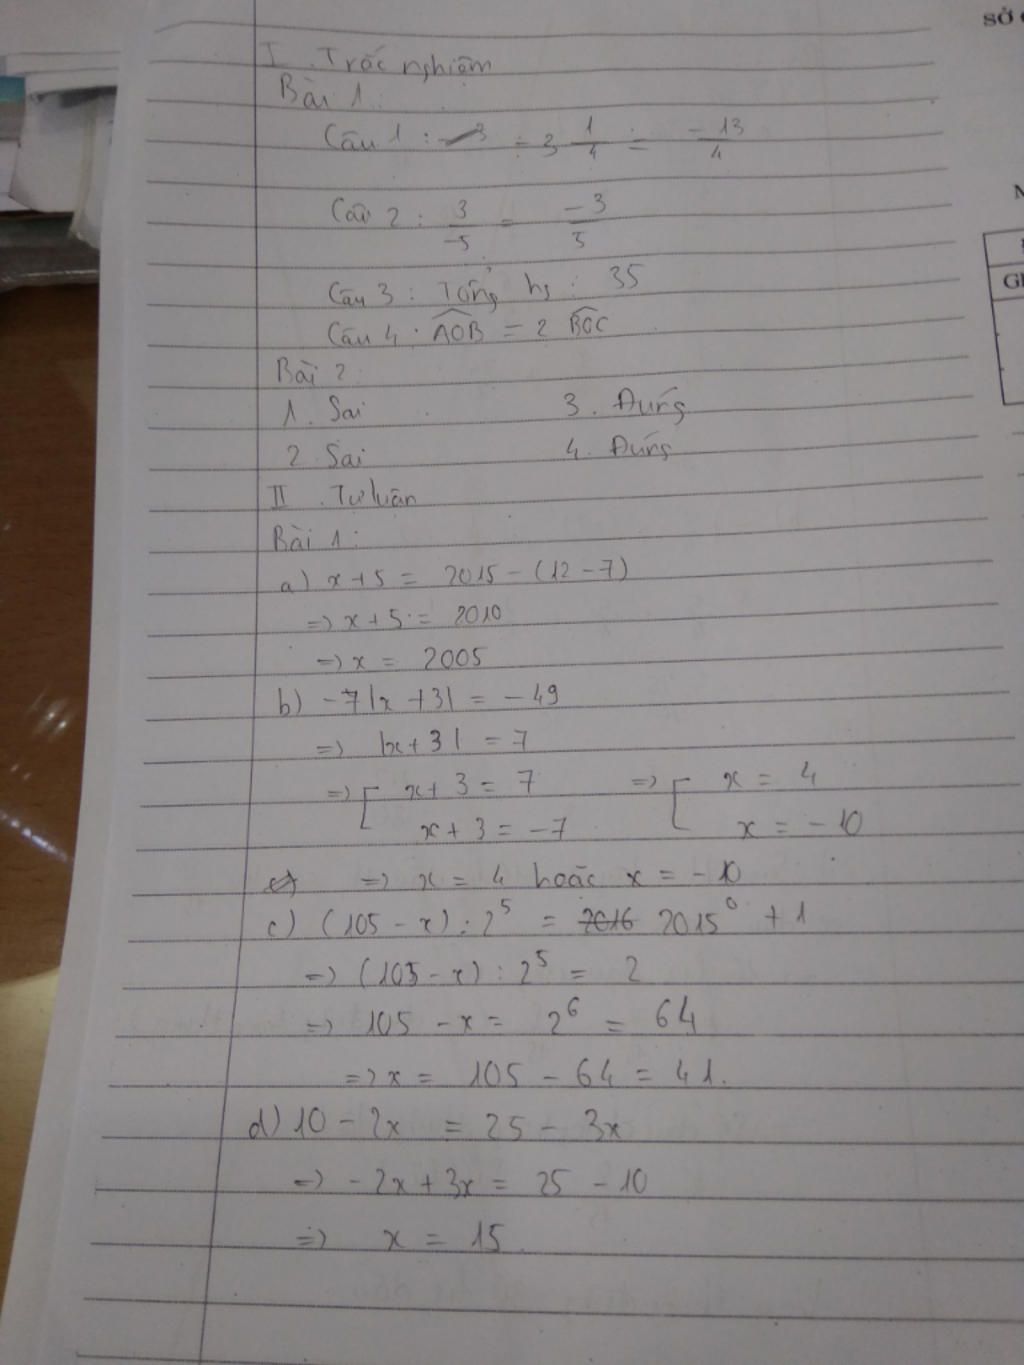 SỞ
I. Trắc nghiệm
Bài 1:
Câu 1: -3 1/4 = -13/4
Câu 2: 3/-5 = -3/5
Câu 3: Tổng hs: 35
Câu 4. AOB = 2 BOC
Bài 2:
1. Sai 3. Đúng
2 Sai 4. Đúng
II. Tự luận
Bài 1:
a) x + 5 = 2015 - (12 - 7)
=> x + 5 = 2010
=> x = 2005
b) -7|x + 3| = -49
=> |x + 3| = 7
=> [ x + 3 = 7 => [ x = 4
x + 3 = -7 x = -10
=> x = 4 hoặc x = -10
c) (105 - x) : 2⁵ = 2016 2015⁰ + 1
=> (105 - x) : 2⁵ = 2
=> 105 - x = 2⁶ = 64
=> x = 105 - 64 = 41.
d) 10 - 2x = 25 - 3x
=> -2x + 3x = 25 - 10
=> x = 15.